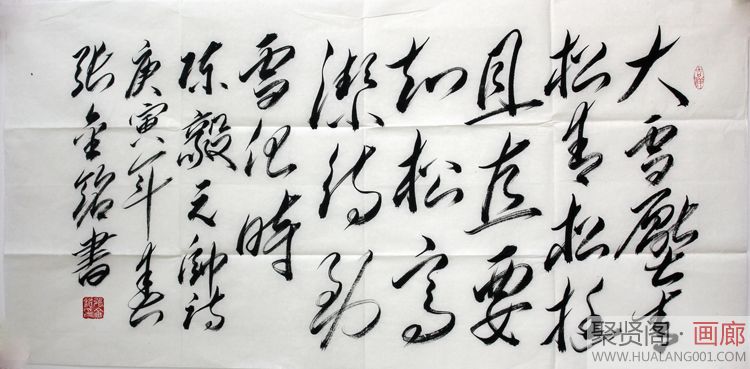 大雪壓青
松青松挺
且直要
知松高
潔待到
雪化時
陳毅元帥詩
庚寅年春
張金銘書
聚贤阁·画廊
WWW.HUALANG001.COM